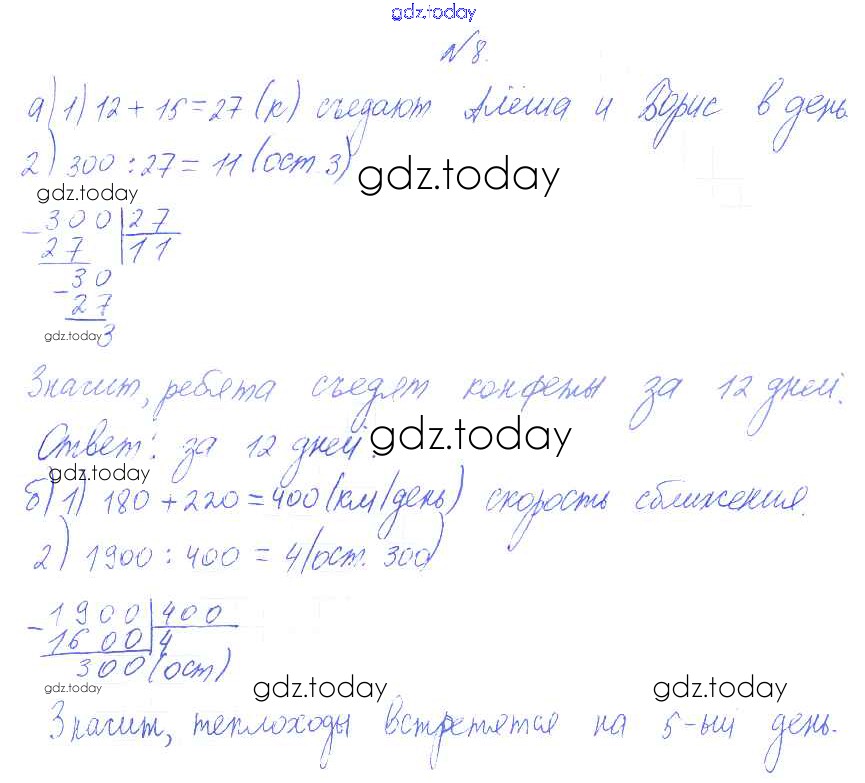 gdz.today
№8.
а) 1) 12 + 15 = 27 (к) съедают Алёша и Борис в день
2) 300 : 27 = 11 (ост. 3)
gdz.today
gdz.today
- 300 | 27
27 | 11
- 30
27
gdz.today 3
Значит, ребята съедят конфеты за 12 дней.
Ответ: за 12 дней.
gdz.today
gdz.today
б) 1) 180 + 220 = 400 (км/день) скорость сближения.
2) 1900 : 400 = 4 (ост. 300)
- 1900 | 400
1600 | 4
300 (ост)
gdz.today gdz.today gdz.today
Значит, теплоходы встретятся на 5-ый день.